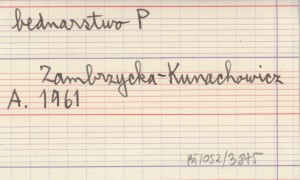 bednarstwo P
Zambrzycka-Kunachowicz
A. 1961